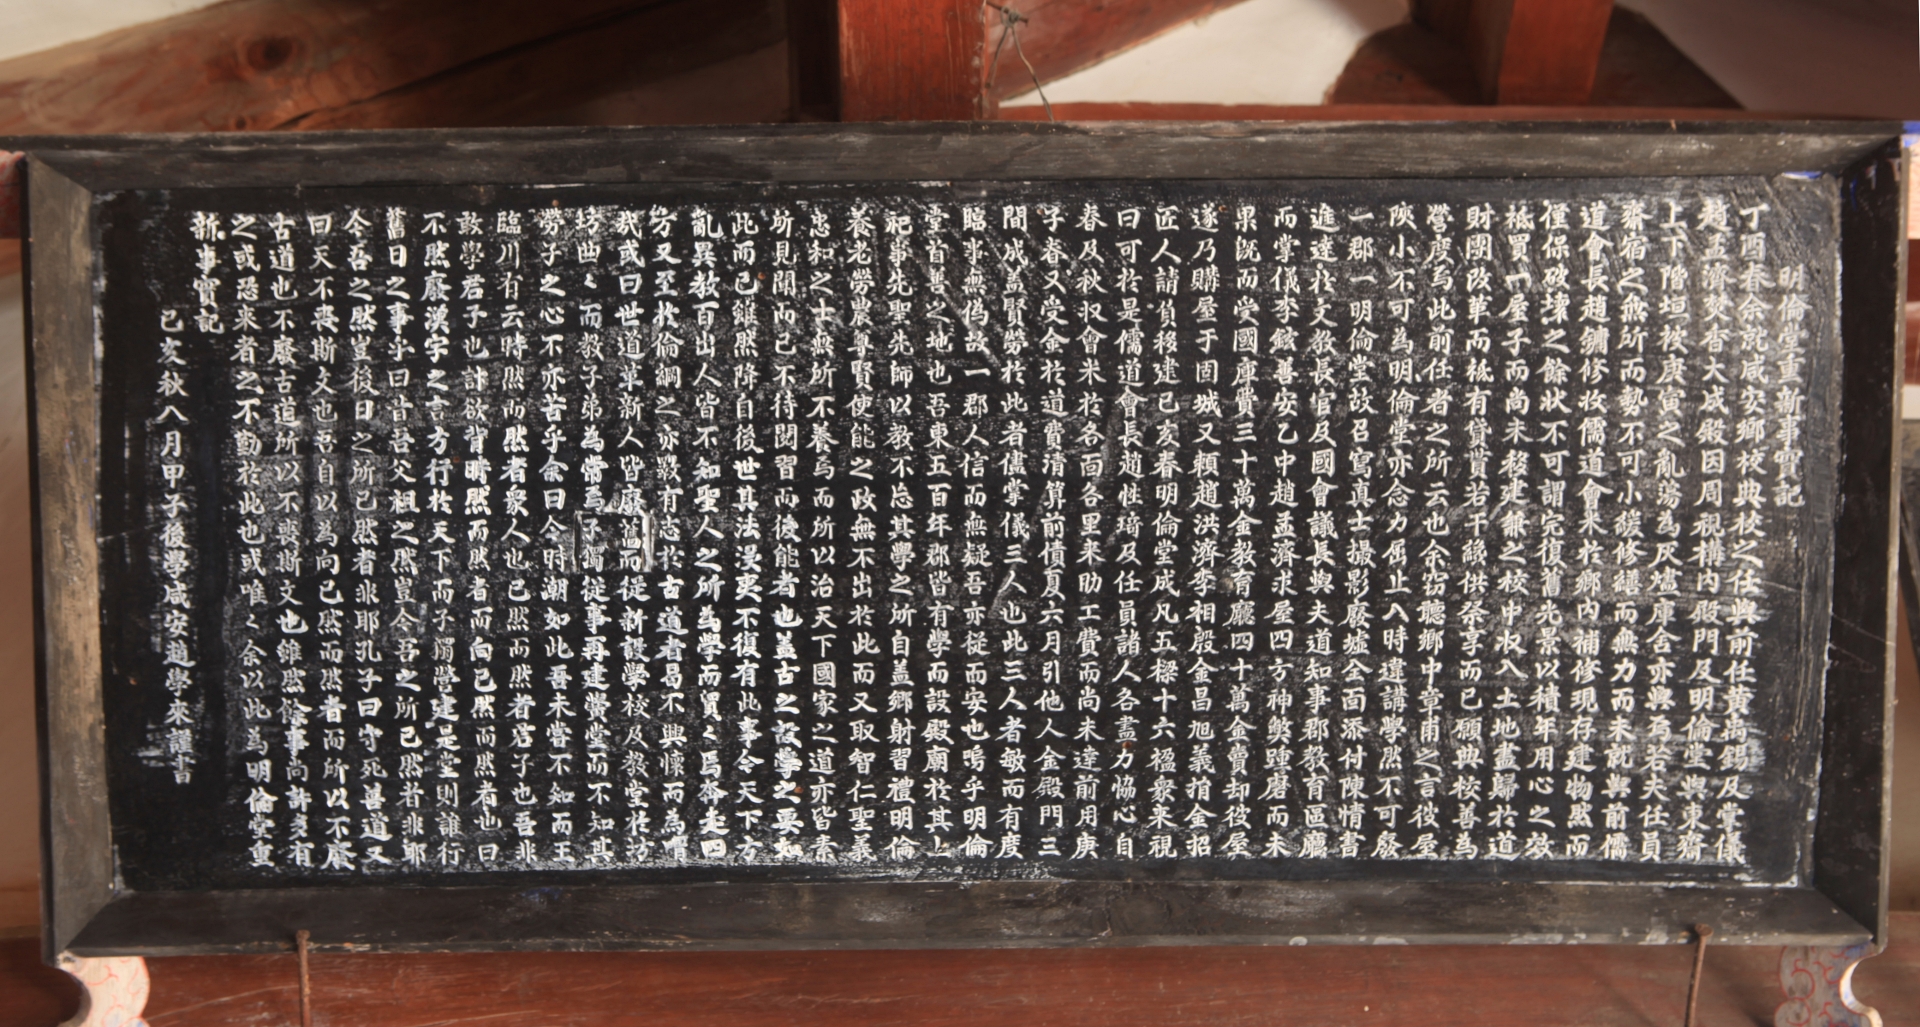 明倫堂重新事實記
丁酉春余就咸安鄉校典校之任與前任黃禹錫及掌儀
趙孟濟焚香大成殿因周視構內殿門及明倫堂與東齋
上下階垣被庚寅之亂蕩為灰燼庫舍亦與焉若夫任員
齋宿之無所而勢不可小緩修繕而無力而未就與前儒
道會長趙鏞修收儒道會米於鄉內補修現存建物然而
僅保破壞之餘狀不可謂完復舊光景以積年用心之效
秪買一屋子而尚未移建兼之校中收入土地盡歸於道
財團改革而秪有貸貰若干緜供祭享而已願與校善為
營度焉此前任者之所云也余窃聽鄉中章甫之言彼屋
陜小不可為明倫堂亦念力屈止入時違講學然不可廢
一郡一明倫堂故召寫真士撮影廢墟全面添付陳情書
進達於文教長官及國會議長與夫道知事郡教育區廳
而掌儀李鉉善安乙中趙孟濟求屋四方神勞踵磨而未
果旣而受國庫費三十萬金教育廳四十萬金賣却彼屋
遂乃購屋于固城又賴趙洪濟李相殷金昌旭義捐金招
匠人請負移建己亥春明倫堂成凡五樑十六楹衆來視
曰可於是儒道會長趙性琦及任員諸人各盡力恊心自
春及秋収會米於各面各里来助工費而尚未達前用庚
子春又受金於道費清算前債夏六月引他人金殿門三
間成盖賢勞於此者儘掌儀三人也此三人者敏而有度
臨事無僞故一郡人信而無疑吾亦從而安也嗚乎明倫
堂首善之地也吾東五百年郡皆有學而設殿廟於其上
祀事先聖先師以教不忘其學之所自盖鄉射習禮明倫
養老勞農尊賢使能之政無不出於此而又取智仁聖義
忠和之士無所不養焉而所以治天下國家之道亦皆素
所見聞而已不待閱習而後能者也盖古之設學之要如
此而已雖然降自後世其法浸夷不復有此事令天下方
亂異教百出人皆不知聖人之所為學而貿〻焉奔走四
方又至於倫綱之亦斁有志於古道者曷不興懷而為喟
哉或曰世道革新人皆廢舊而從新設學校及教堂於坊
坊曲〻而教子弟為常焉子獨從事再建黌堂而不知其
勞子之心不亦苦乎余曰今時潮如此吾未嘗不知而王
臨川有云時然而然者衆人也已然而然者君子也吾非
敢學君子也計欲背時然而然者而向已然而然者也曰
不然廢漢字之言方行於天下而子獨營建是堂則誰行
舊日之事乎曰昔吾父祖之然豈令吾之所已然者非耶
今吾之然豈後日之所已然者非耶孔子曰守死善道又
曰天不喪斯文也吾自以為向已然而然者而所以不廢
古道也不廢古道所以不喪斯文也雖然餘事尚許多有
之或恐來者之不勤於此也或唯〻余以此為明倫堂重
新事實記
己亥秋八月甲子後學咸安趙學來謹書